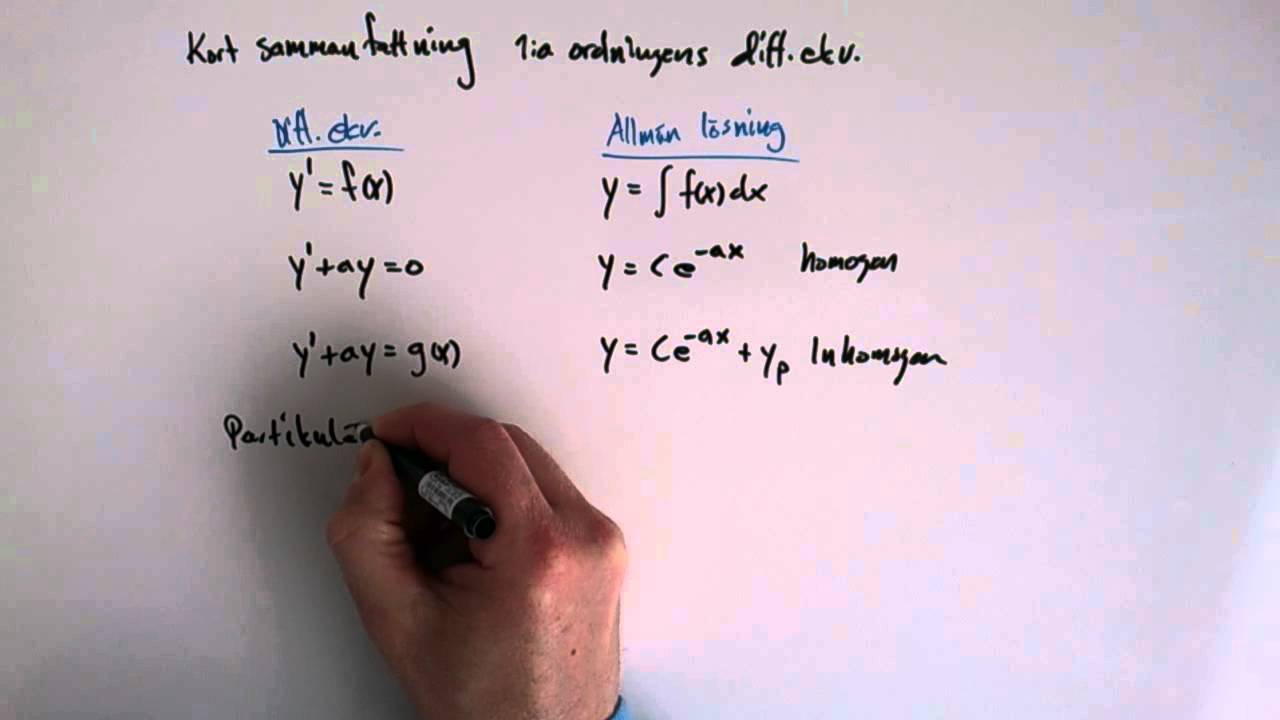 Kort sammanfattning 1:a ordningens diff.ekv.
Diff.ekv. Allmän lösning
y' = f(x) y = ∫ f(x) dx
y' + ay = 0 y = Ce^{-ax} homogen
y' + ay = g(x) y = Ce^{-ax} + y_p Inhomogen
Partikulär